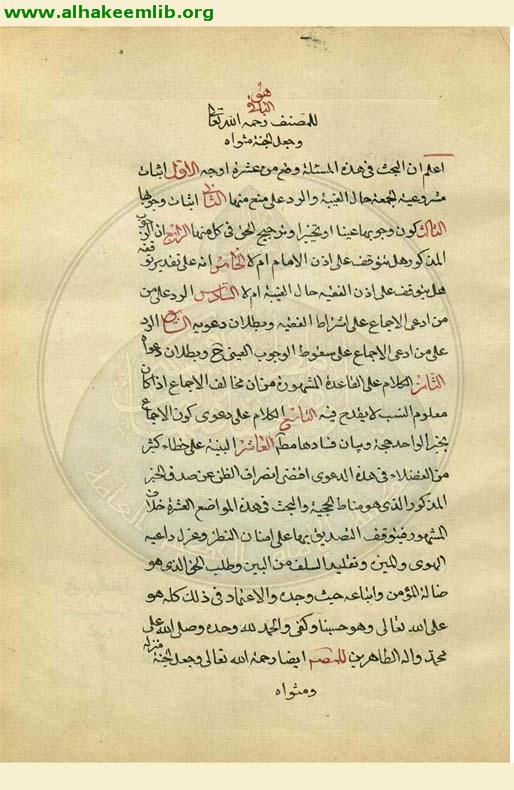 www.alhakeemlib.org
هو
الباقي
للمصنف رحمه الله تعالى
وجعل الجنة مثواه
اعلم ان البحث في هذه المسئلة وقع من عشرة اوجه الاول اثبات
مشروعية الجمعة حال الغيبة والرد على من منع منها الثاني اثبات وجوبها
الثالث كون وجوبها عينا او تخييرا وترجيح الحق في كل منهما الرابع ان الوجوب
المذكور هل يتوقف على اذن الامام ام لا الخامس انه على تقدير توقفه
هل يتوقف على اذن الفقيه حال الغيبة ام لا السادس الرد على من
من ادعى الاجماع على اشتراط الفقيه وبطلان دعويه السابع الرد
على من ادعى الاجماع على سقوط الوجوب العيني ح وبطلان دعواه
الثامن الكلام على القاعدة المشهورة من ان مخالف الاجماع اذا كان
معلوم النسب لا يقدح فيه التاسع الكلام على دعوى كون الاجماع
بخبر الواحد حجة وبيان فسادها مطلقا العاشر البنية على خطاء كثير
من الفضلاء في هذه الدعوى اقتضى انصراف الظن عن صدق الخبر
المذكور الذي هو مناط الحجية والبحث في هذه المواضع العشرة خلاف
المشهور فيتوقف التصديق بها على امعان النظر وعزل داعية
الهوى والمين وتقليد السلف من البين وطلب الحق الذي هو
ضالة المؤمن واتباعه حيث وجده والاعتماد في ذلك كله هو
على الله تعالى وهو حسبنا وكفى والحمد لله وحده وصلى الله على
محمد واله الطاهرين للمصنف ايضا رحمة الله تعالى وجعل الجنة منزله
ومثواه